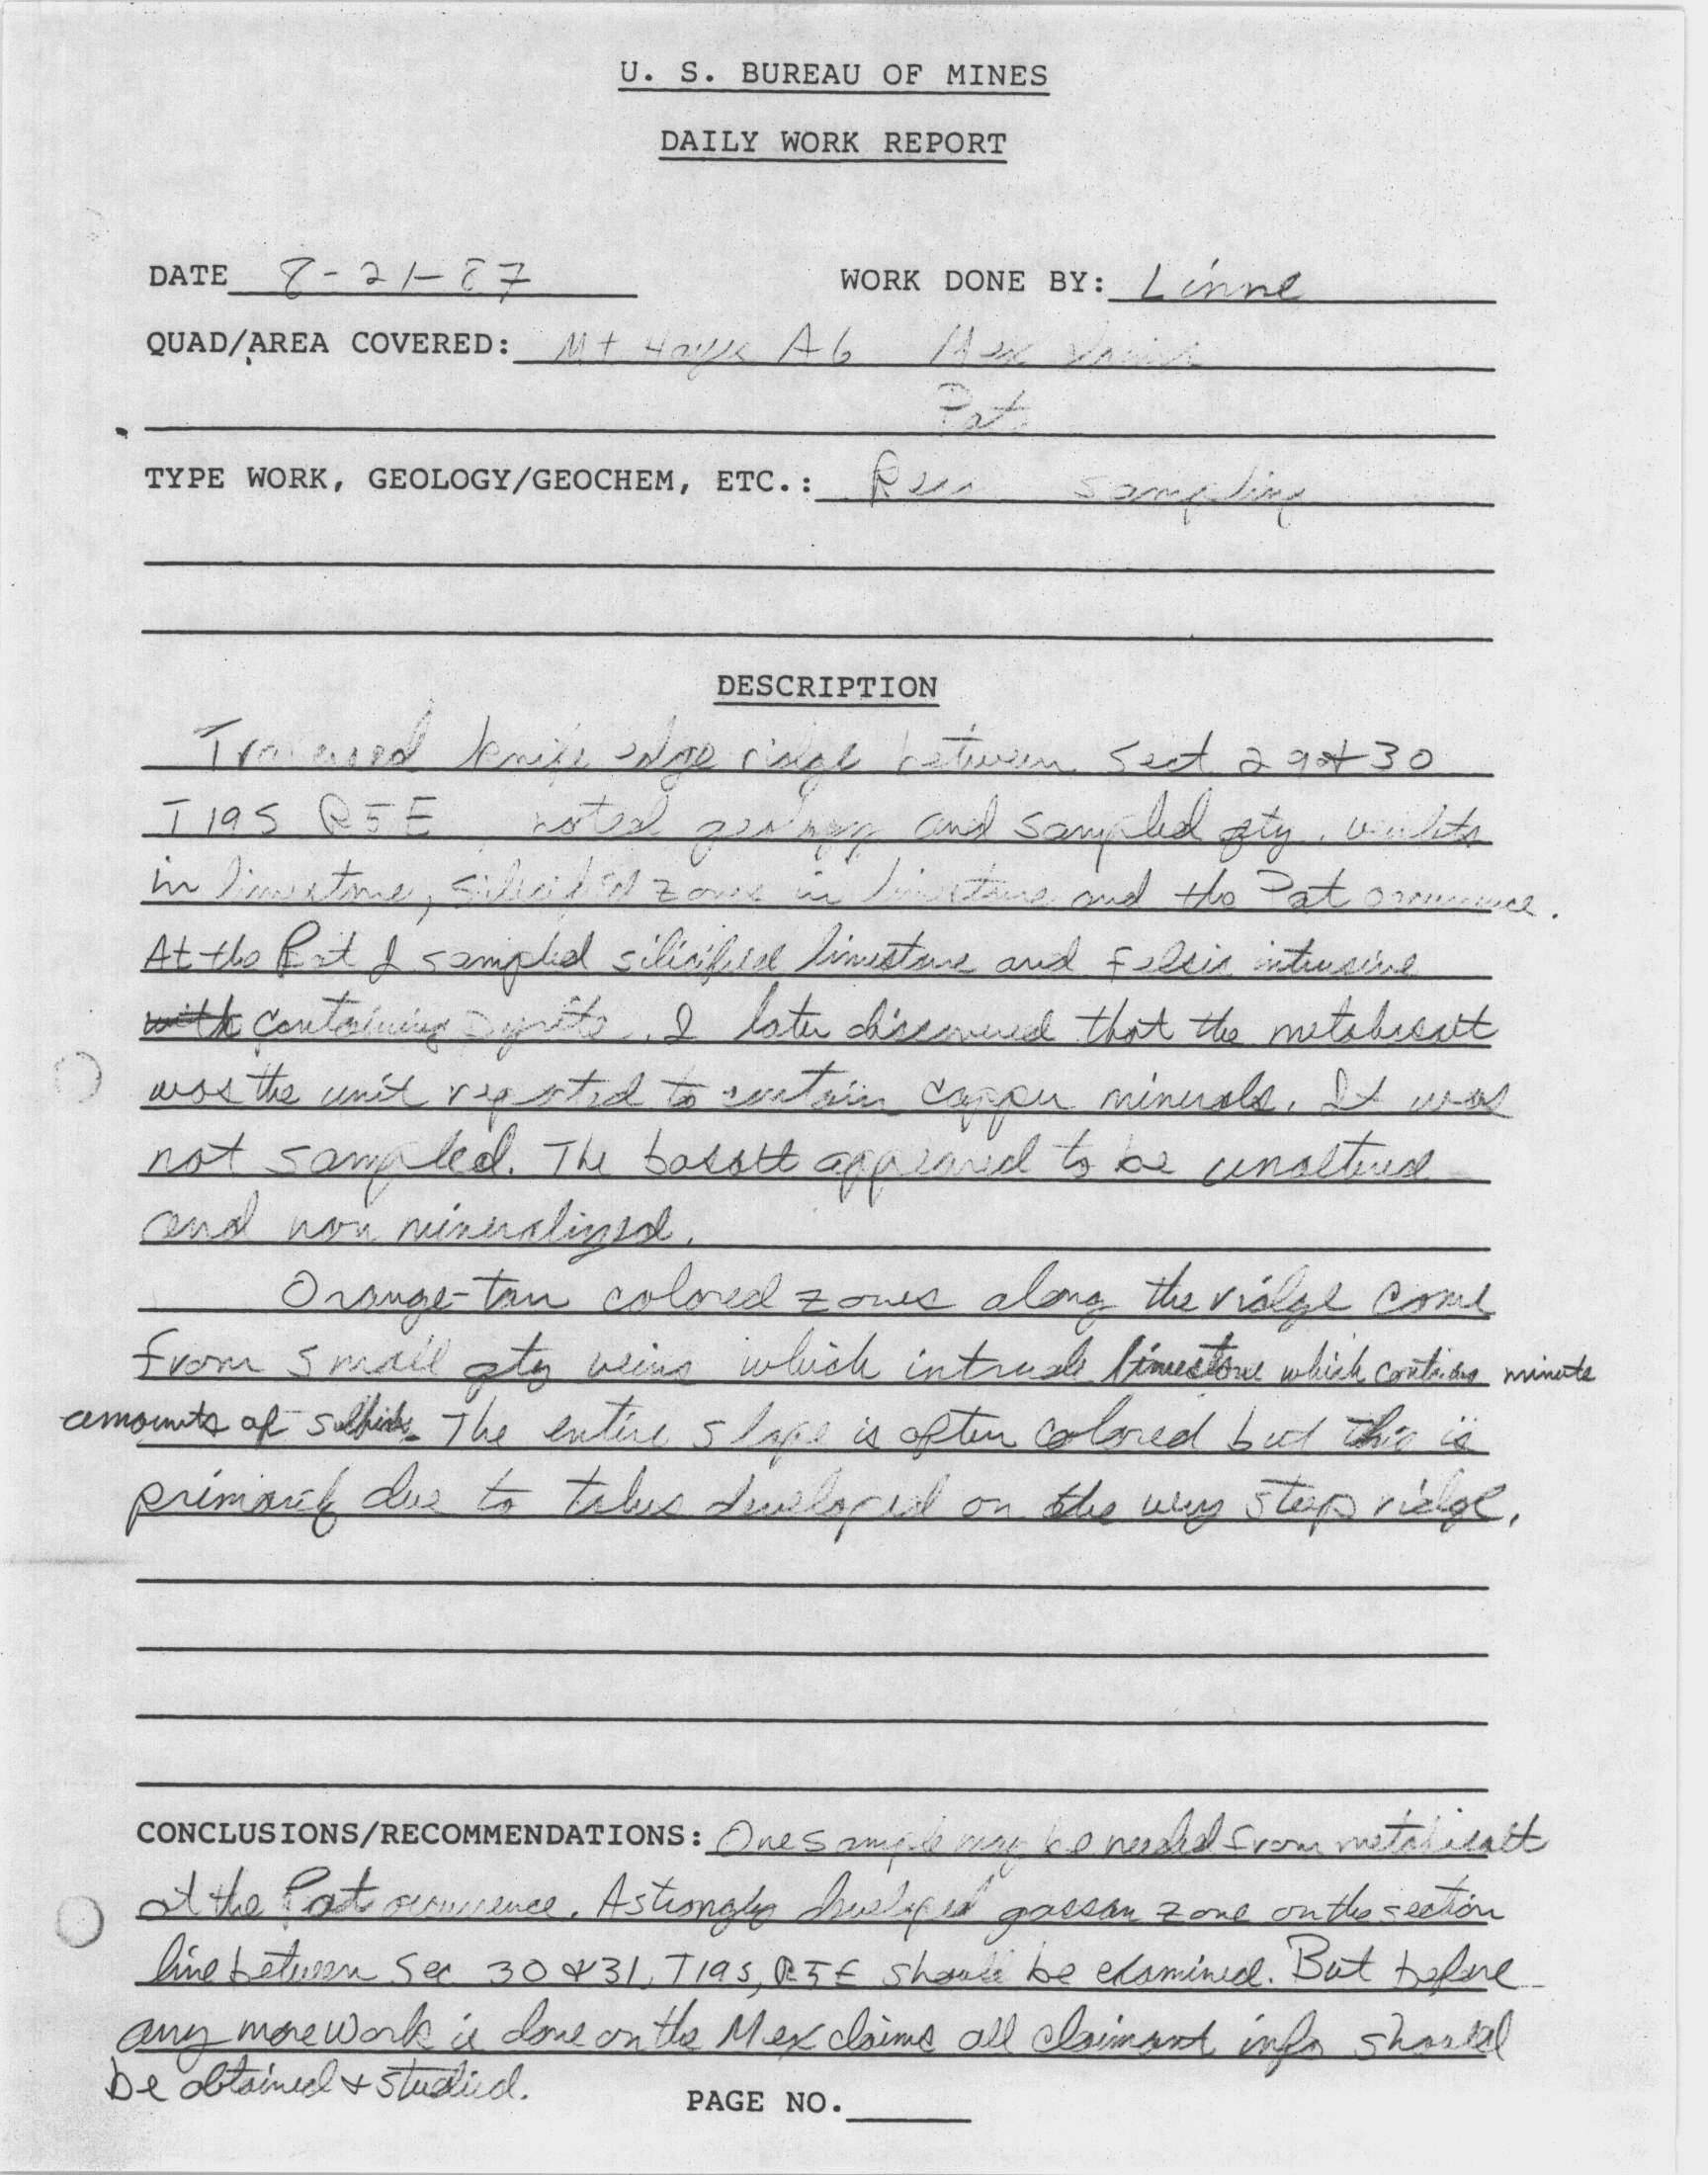 U. S. BUREAU OF MINES
DAILY WORK REPORT
DATE 8-21-87 WORK DONE BY: Linne
QUAD/AREA COVERED: Mt Hayes A6 Mex
Pat
TYPE WORK, GEOLOGY/GEOCHEM, ETC.: Recon sampling
DESCRIPTION
Traversed knife edge ridge between Sect 29 & 30
T19S R5E noted geology and sampled qtz. veinlets
in limestone, silicified zone in limestone and the Pat occurrence.
At the Pat I sampled silicified limestone and felsic intrusive
with containing pyrite. I later discovered that the metabasalt
was the unit reported to contain copper minerals. It was
not sampled. The basalt appeared to be unaltered
and non mineralized.
Orange-tan colored zones along the ridge come
from small qtz veins which intrude limestone which contains minute
amounts of sulfides. The entire slope is often colored but this is
primarily due to talus developed on the very steep ridge.
CONCLUSIONS/RECOMMENDATIONS: One sample may be needed from metabasalt
at the Pat occurrence. A strongly developed gossan zone on the section
line between Sec 30 & 31, T19S, R5E should be examined. But before
any more work is done on the Mex claims all claimant info should
be obtained & studied.
PAGE NO.